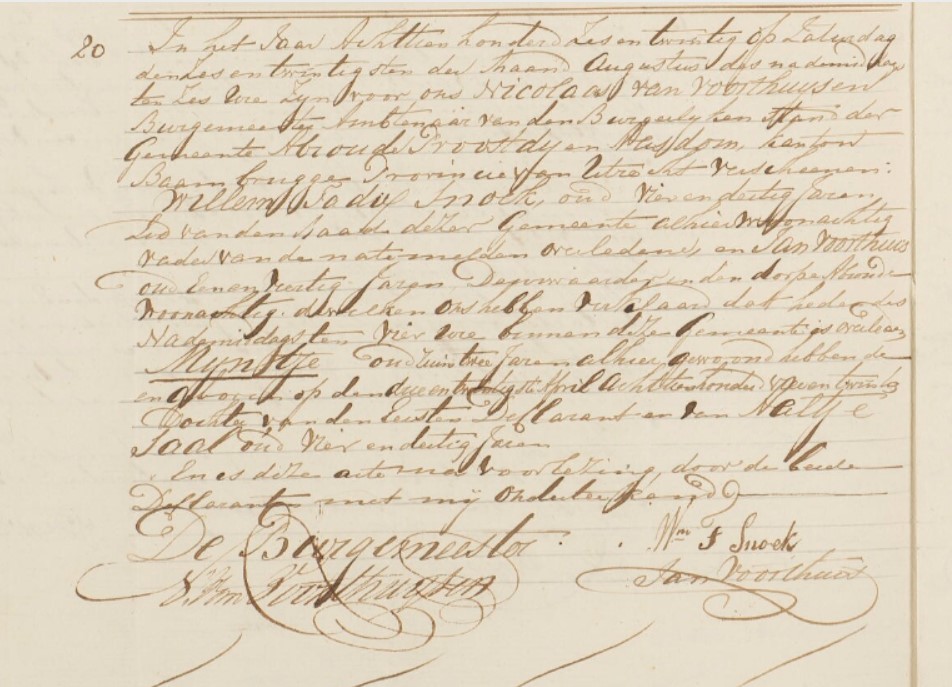 20 In het Jaar Achttien honderd Zes en twintig op Zaturdag
den Zes en twintigsten der Maand Augustus des nademiddags
ten Zes Ure Zyn voor ons Nicolaas van Voorthuysen
Burgemeester Ambtenaar van den Burgerlyken Stand der
Gemeente Abcoude Proostdy en Aasdom, kanton
Baambrugge Provincie van Utrecht Verscheenen:
Willem Snoek, oud Vier en dertig Jaren,
Lid van den Raad dezer Gemeente alhier Woonachtig
vader van de nate melden overledene, en Jan Voorthuis
oud Een en Veertig Jaren in den dorpe Abcoude
Woonachtig. dewelken ons hebben verklaard dat heden des
Nademiddags ten Vier Ure binnen deze Gemeente is overleden
Myntje oud ruim twee Jaren alhier gewoond hebbende
en geboren op den April Achttienhonderd Vier en twintig
Dochter van den eersten Declarant en van Neeltje
Saal oud Vier en dertig Jaren
En is deze acte na voorlezing, door de beide
Declaranten met mij ondertekend
De Burgemeester
N. van Voorthuysen
Wm F Snoek
Jan Voorthuis